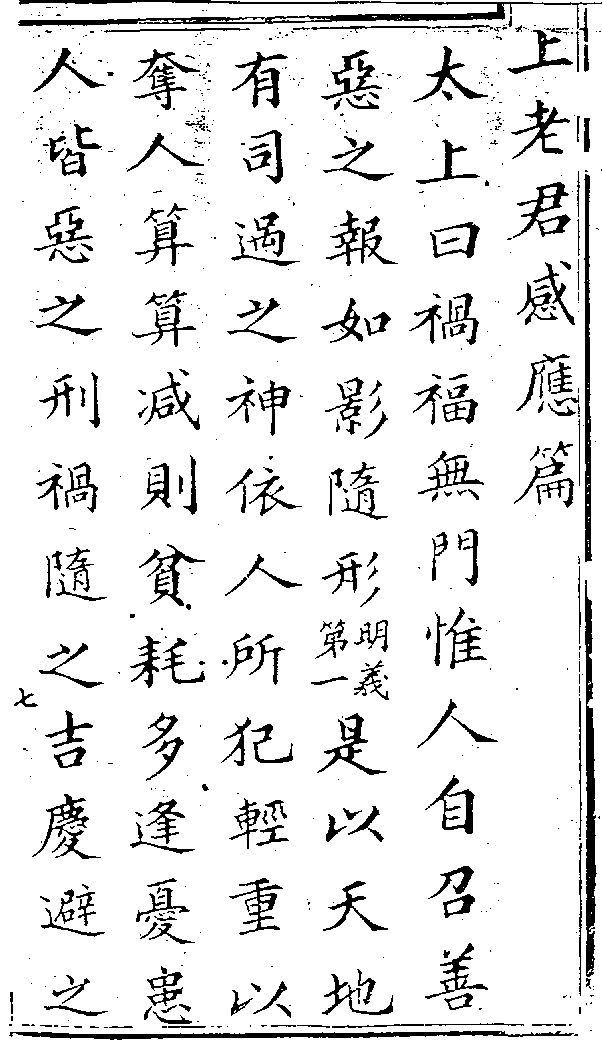 上老君感應篇
太上曰禍福無門惟人自召善
惡之報如影隨形明義第一是以天地
有司過之神依人所犯輕重以
奪人算算減則貧耗多逢憂患
人皆惡之刑禍隨之吉慶避之
七